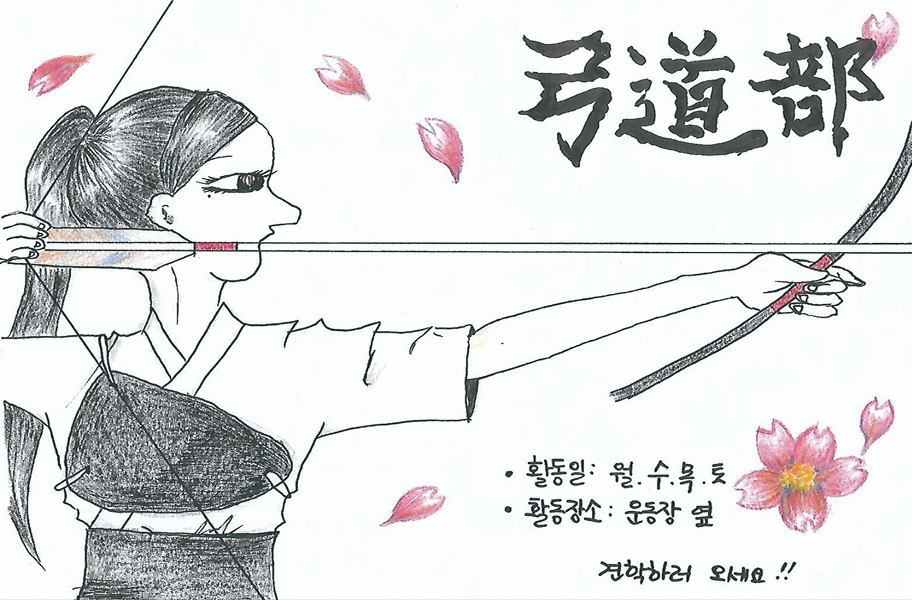 弓道部
• 활동일: 월.수.목.토
• 활동장소: 운동장 옆
견학하러 오세요!!